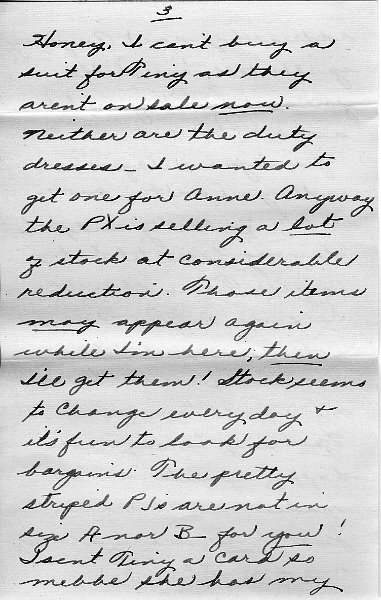 3
Honey, I can't buy a
suit for Tiny as they
arent on sale now.
Neither are the duty
dresses - I wanted to
get one for Anne. Anyway
the PX is selling a lot
of stock at considerable
reduction. Those items
may appear again
while I'm here, then
I'll get them! Stock seems
to change every day +
it's fun to look for
bargains. The pretty
striped PJs are not in
size A nor B - for you!
I sent Tiny a card so
mebbe she has my